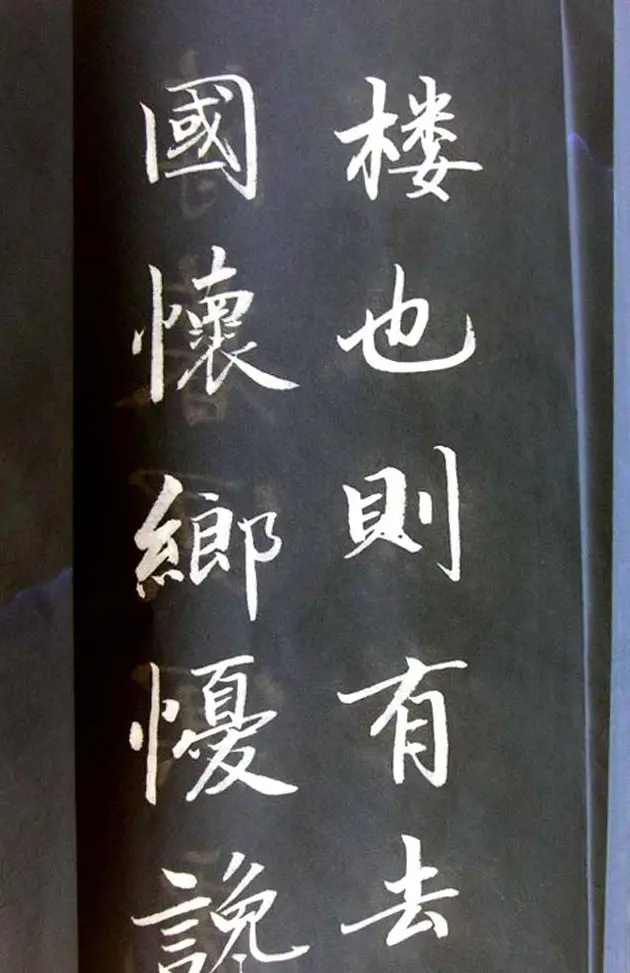 楼也則有去
國懷鄉懮讒